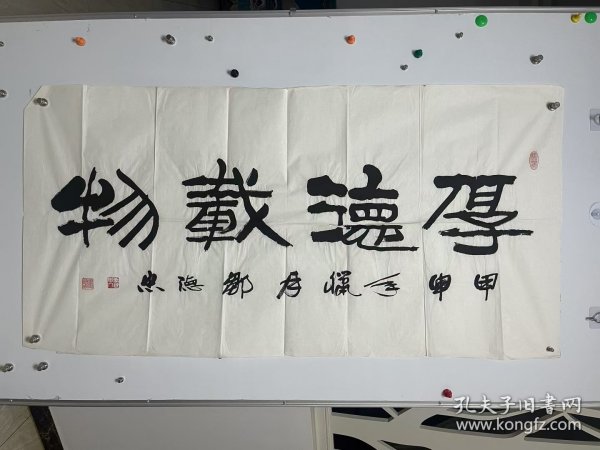 厚德載物
甲申年臘月鄧德忠
孔夫子旧書网
www.kongfz.com